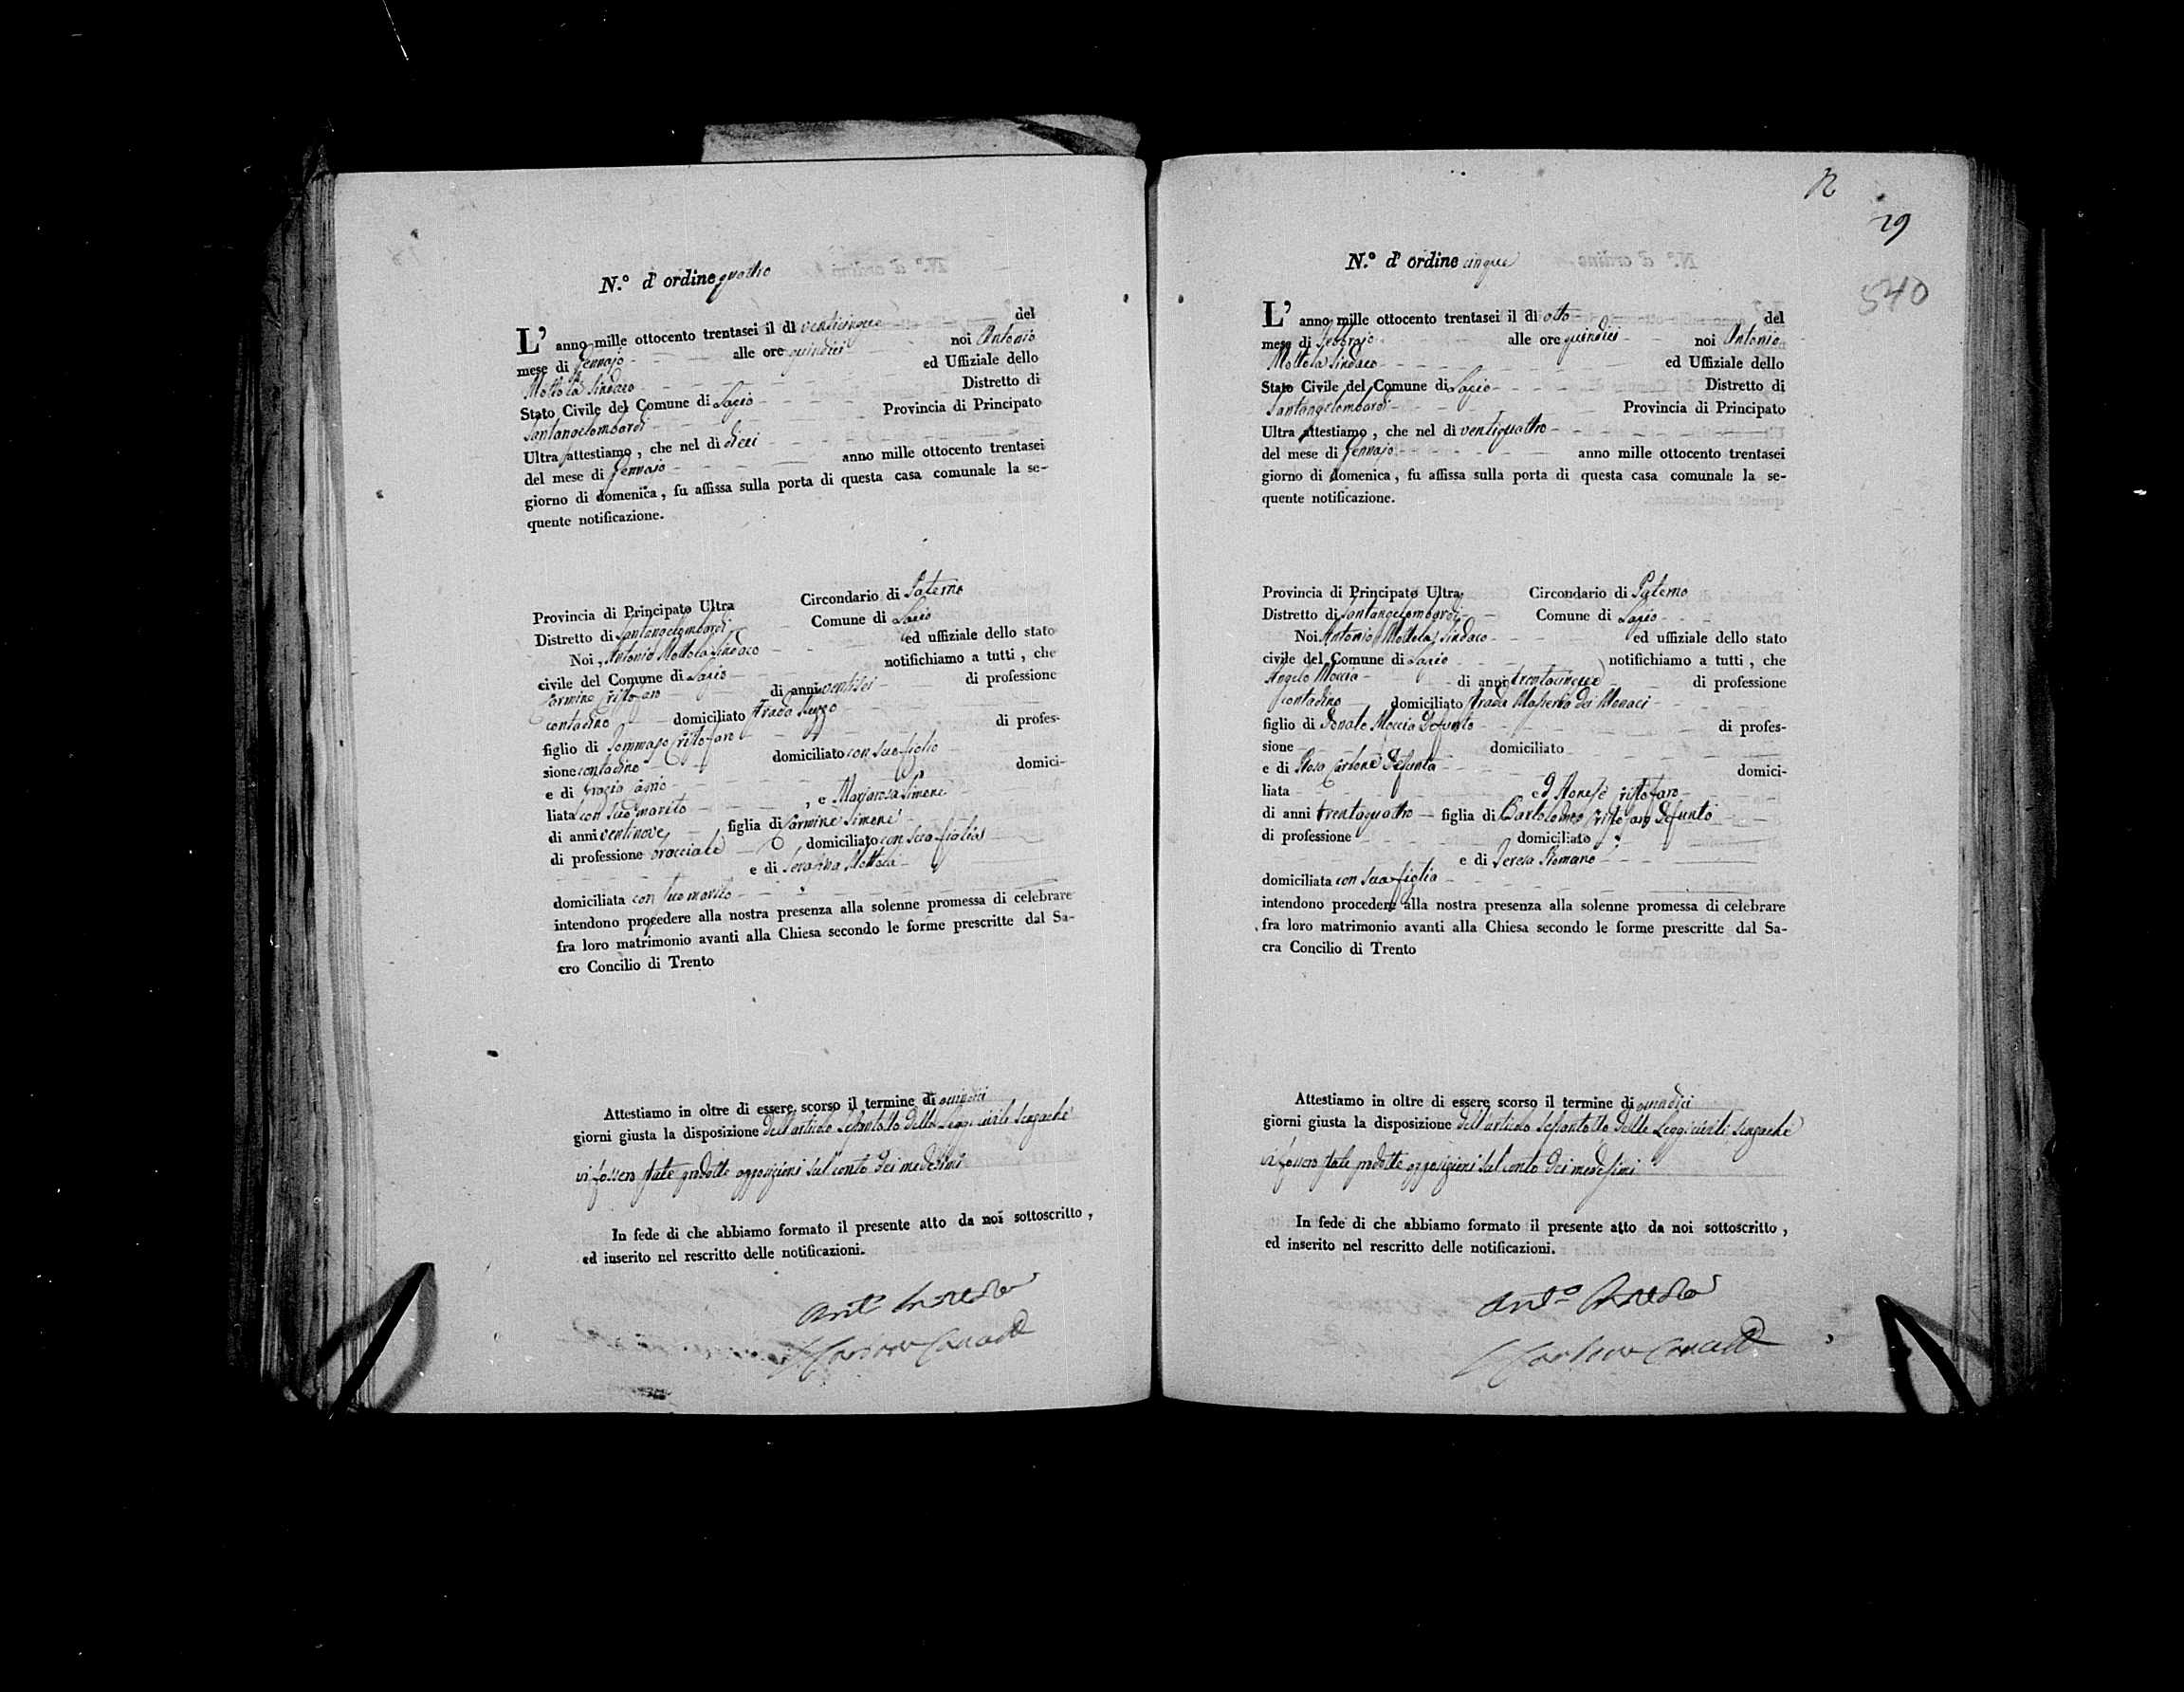 N.º d' ordine quattro
L' anno mille ottocento trentasei il dì venticinque del
mese di Gennajo alle ore quindici noi Antonio
Mottola Sindaco ed Uffiziale dello
Stato Civile del Comune di Lapio Distretto di
Santangelombardi Provincia di Principato
Ultra attestiamo, che nel dì dieci
del mese di Gennajo anno mille ottocento trentasei
giorno di domenica, fu affissa sulla porta di questa casa comunale la se-
quente notificazione.
Provincia di Principato Ultra Circondario di Paterno
Distretto di Santangelombardi Comune di Lapio
Noi Antonio Mottola Sindaco ed uffiziale dello stato
civile del Comune di Lapio notifichiamo a tutti, che
Carmine Cristofaro di anni ventisei di professione
contadino domiciliato Strada
figlio di Tommaso Cristofaro di profes-
sione contadino domiciliato con suo figlio
e di Grazia domici-
liata con suo marito, e Mariarosa Simone
di anni ventinove figlia di Carmine Simone
di professione bracciale domiciliato con sua figlia
e di Serafina Mottola
domiciliata con suo marito
intendono procedere alla nostra presenza alla solenne promessa di celebrare
fra loro matrimonio avanti alla Chiesa secondo le forme prescritte dal Sa-
cro Concilio di Trento
Attestiamo in oltre di essere scorso il termine di quindici
giorni giusta la disposizione dell'articolo Sessantotto delle Leggi civili senzache
vi fossero state prodotte opposizioni sul conto dei medesimi
In fede di che abbiamo formato il presente atto da noi sottoscritto,
ed inserito nel rescritto delle notificazioni.
12
29
540
N.º d' ordine cinque
L' anno mille ottocento trentasei il dì otto del
mese di Febbrajo alle ore quindici noi Antonio
Mottola Sindaco ed Uffiziale dello
Stato Civile del Comune di Lapio Distretto di
Santangelombardi Provincia di Principato
Ultra attestiamo, che nel dì ventiquattro
del mese di Gennajo anno mille ottocento trentasei
giorno di domenica, fu affissa sulla porta di questa casa comunale la se-
quente notificazione.
Provincia di Principato Ultra Circondario di Paterno
Distretto di Santangelombardi Comune di Lapio
Noi Antonio Mottola Sindaco ed uffiziale dello stato
civile del Comune di Lapio notifichiamo a tutti, che
Angelo Moccia di anni trentacinque di professione
contadino domiciliato Strada Masseria dei Monaci
figlio di Donato Moccia Defunto di profes-
sione domiciliato
e di Rosa Carbone Defunta domici-
liata ed Agnese Cristofaro
di anni trentaquattro figlia di Bartolomeo Cristofaro Defunto
di professione domiciliato
e di Teresa Romano
domiciliata con sua figlia
intendono procedere alla nostra presenza alla solenne promessa di celebrare
fra loro matrimonio avanti alla Chiesa secondo le forme prescritte dal Sa-
cra Concilio di Trento
Attestiamo in oltre di essere scorso il termine di quindici
giorni giusta la disposizione dell'articolo Sessantotto delle Leggi civili senzache
vi fossero state prodotte opposizioni sul conto dei medesimi
In fede di che abbiamo formato il presente atto da noi sottoscritto,
ed inserito nel rescritto delle notificazioni.